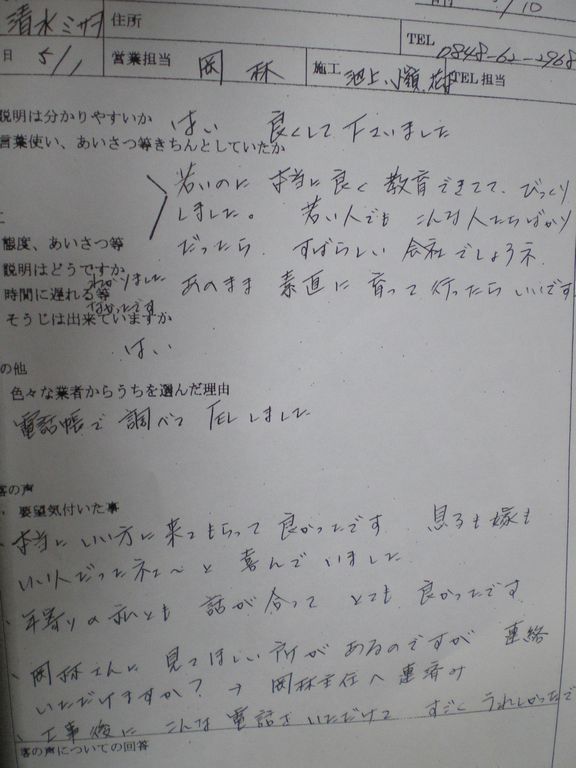 /10
清水ミサヲ 住所
TEL 0848-62-2968
日 5/1 営業担当 岡林 施工 池上、小嶺 TEL担当
説明は分かりやすいか はい 良くして下さいました
言葉使い、あいさつ等きちんとしていたか
若いのに 本当に良く教育できてて、びっくり
しました。 若い人でも こんな人たちばかり
態度、あいさつ等 だったら すばらしい会社でしょうネ
説明はどうですか わかりました
あのまま 素直に育って行ったらいいです
時間に遅れる等 なかったです
そうじは出来ていますか
はい
の他
色々な業者からうちを選んだ理由
電話帳で調べて TELしました
客の声
・要望気付いた事
、本当にいい方に来てもらって良かったです 息子も嫁も
いい人だったネ～と 喜んでいました
、年寄りの私とも 話が合って とても良かったです
、岡林さんに見てほしい所があるのですが 連絡
いただけますか? → 岡林主任へ連済み
、工事後にこんな電話までいただけて すごくうれしかったで
客の声についての回答